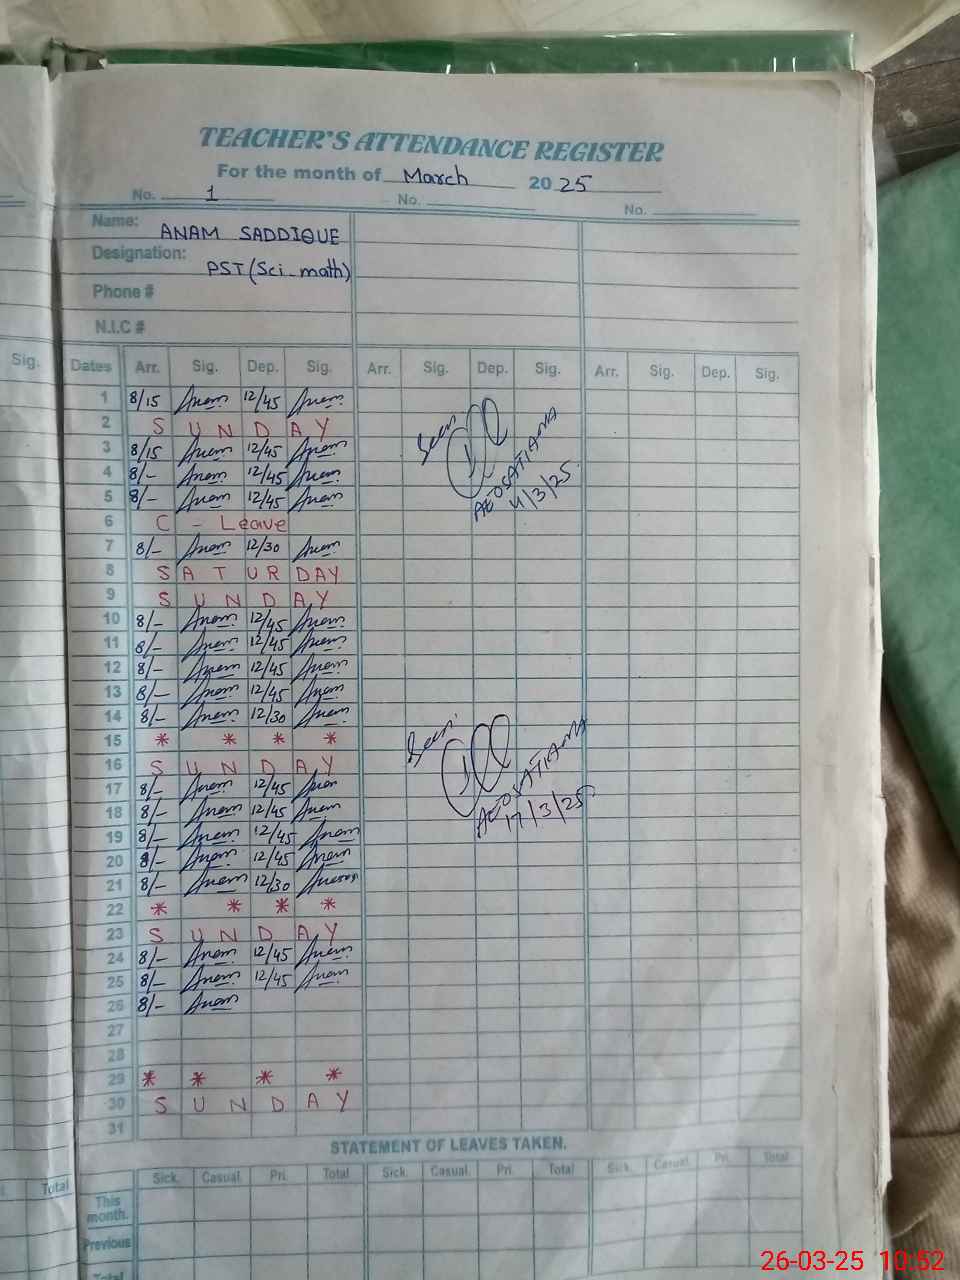 TEACHER'S ATTENDANCE REGISTER
For the month of March 2025
No. 1 No. No.
Name: ANAM SADDIQUE
Designation: PST (Sci-math)
Phone #
N.I.C #
Sig. Dates Arr. Sig. Dep. Sig. Arr. Sig. Dep. Sig. Arr. Sig. Dep. Sig.
1 8/15 Anam 12/45 Anam
2 SUNDAY
3 8/15 Anam 12/45 Anam
4 8/- Anam 12/45 Anam
5 8/- Anam 12/45 Anam
6 C - Leave
7 8/- Anam 12/30 Anam
8 SATURDAY
9 SUNDAY
10 8/- Anam 12/45 Anam
11 8/- Anam 12/45 Anam
12 8/- Anam 12/45 Anam
13 8/- Anam 12/45 Anam
14 8/- Anam 12/30 Anam
15 * * * *
16 SUNDAY
17 8/- Anam 12/45 Anam
18 8/- Anam 12/45 Anam
19 8/- Anam 12/45 Anam
20 8/- Anam 12/45 Anam
21 8/- Anam 12/30 Anam
22 * * * *
23 SUNDAY
24 8/- Anam 12/45 Anam
25 8/- Anam 12/45 Anam
26 8/- Anam
27
28
29 * * * *
30 SUNDAY
31
Seen
AEOSATIANA
4/3/25
Seen
AEOSATIANA
17/3/25
STATEMENT OF LEAVES TAKEN.
Total Sick. Casual. Pri. Total Sick. Casual. Pri. Total Sick. Casual. Pri. Total
This
month.
Previous
Total
26-03-25 10:52